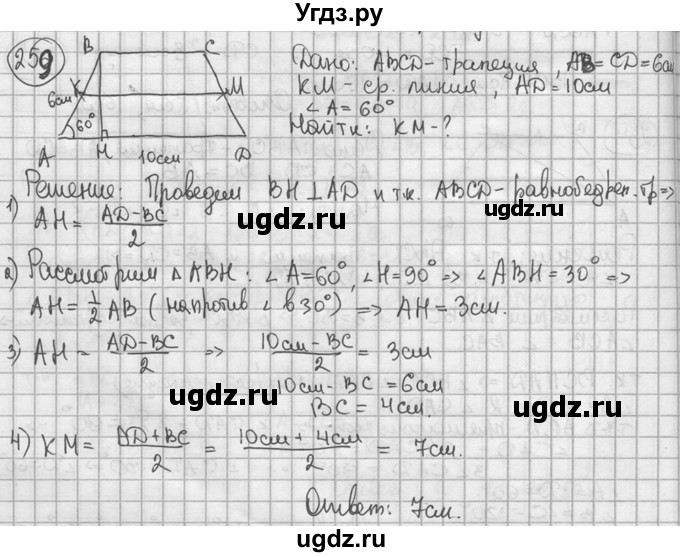 Угдз.ру
259
B C
K M
6см
60°
A H 10см D
Дано: ABCD - трапеция, AB = CD = 6см
KM - ср. линия, AD = 10см
∠A = 60°
Найти: KM - ?
Решение: Проведем BH ⊥ AD и т.к. ABCD - равнобедрен. тр =>
1) AH = (AD - BC)/2
ugdz.ru
ugdz.ru
2) Рассмотрим △ABH: ∠A = 60°, ∠H = 90° => ∠ABH = 30° =>
AH = 1/2 AB (напротив ∠ в 30°) => AH = 3см.
ugdz.ru
3) AH = (AD - BC)/2 => (10см - BC)/2 = 3см
10см - BC = 6см
BC = 4см.
ugdz.ru
ugdz.ru
4) KM = (AD + BC)/2 = (10см + 4см)/2 = 7см.
ugdz.ru
Ответ: 7см.
ugdz.ru